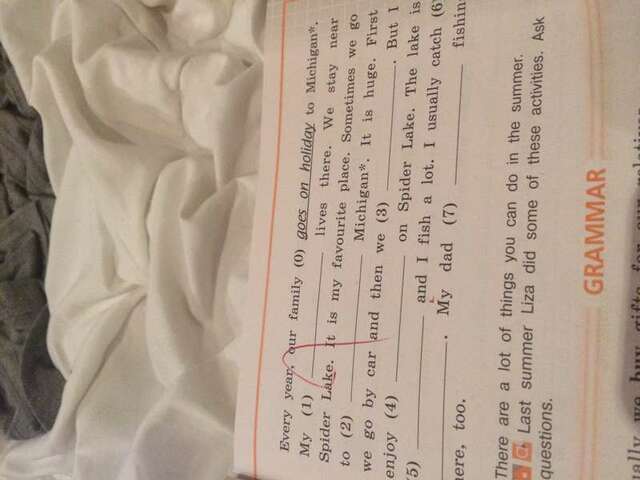 Every year, our family (0) goes on holiday to Michigan*.
My (1) ________ lives there. We stay near
Spider Lake. It is my favourite place. Sometimes we go
to (2) ________ Michigan*. It is huge. First
we go by car and then we (3) ________. But I
enjoy (4) ________ on Spider Lake. The lake is
(5) ________ and I fish a lot. I usually catch (6
________. My dad (7) ________ fishin
here, too.
There are a lot of things you can do in the summer.
Last summer Liza did some of these activities. Ask
questions.
GRAMMAR
buy gifts for our